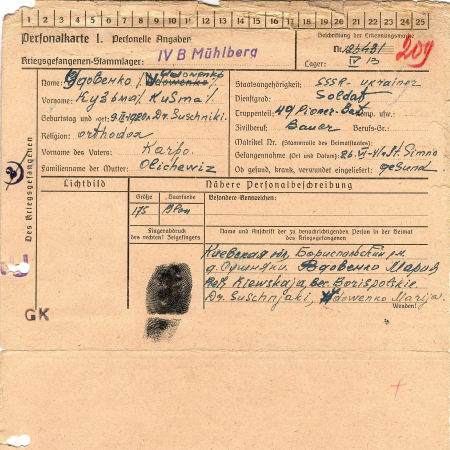 1 2 3 4 5 6 7 8 9 10 11 12 13 14 15 16 17 18 19 20 21 22 23 24 25
Personalkarte I. Personelle Angaben
Beschriftung der Erkennungsmarke
Kriegsgefangenen-Stammlager: IV B Mühlberg
Nr.
209
Lager: IV B
Des Kriegsgefangenen
Name: Вдовенко
Vorname: Кузьма / Kusma
Geburtstag und -ort: 9.II.1920 Dr. Suschniki
Religion: orthodox
Vorname des Vaters: Karpo
Familienname der Mutter: Olichewiz
Staatsangehörigkeit: SSSR - ukrainer
Dienstgrad: Soldat
Truppenteil: 49 Pioner-Bat. Komp. usw.:
Zivilberuf: Bauer Berufs-Gr.:
Matrikel Nr. (Stammrolle des Heimatstaates):
Gefangennahme (Ort und Datum): St. Simno
Ob gesund, krank, verwundet eingeliefert: gesund
Lichtbild
Nähere Personalbeschreibung
Größe
Haarfarbe
Besondere Kennzeichen:
175
Fingerabdruck
des rechten! Zeigefingers
Name und Anschrift der zu benachrichtigenden Person in der Heimat
des Kriegsgefangenen
Киевская обл, Бориспольский р-н
д. Сушняки. Вдовенко Мария
Kiewskaja, Borispolskie
Dr. Suschnjaki, Wdowenko Marija
Wenden!
GK